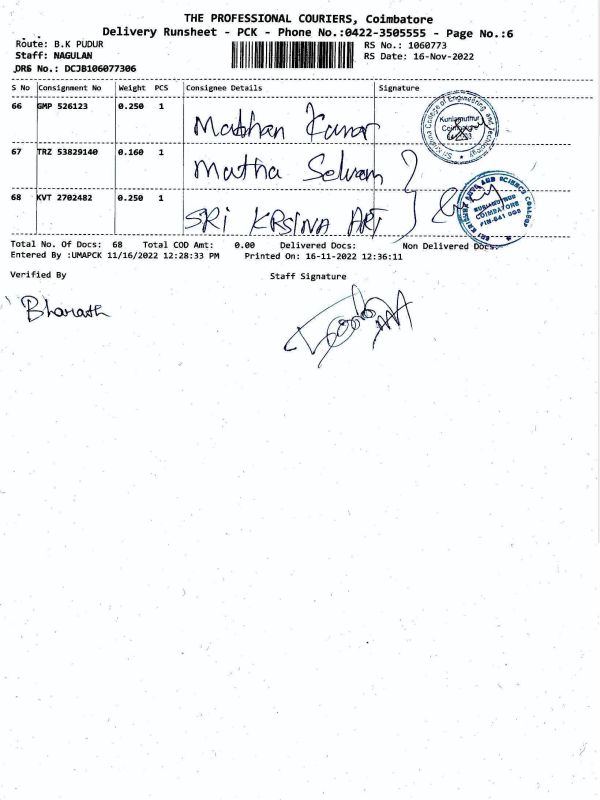 THE PROFESSIONAL COURIERS, Coimbatore
Delivery Runsheet - PCK - Phone No.:0422-3505555 - Page No.:6
Route: B.K PUDUR
RS No.: 1060773
Staff: NAGULAN
RS Date: 16-Nov-2022
DRS No.: DCJB106077306
S No Consignment No Weight PCS Consignee Details Signature
66 GMP 526123 0.250 1 Madhan Kumar
67 TRZ 53829140 0.160 1 Mutha Selvam
68 KVT 2702482 0.250 1 SRI KRSINA ART
Sri Krishna College of Engineering and Technology
Kuniamuthur
Coimbatore
SRI KRISHNA ARTS AND SCIENCE COLLEGE
KUNIAMUTHUR
COIMBATORE
PIN-641 008
Total No. Of Docs: 68 Total COD Amt: 0.00 Delivered Docs: Non Delivered Docs:
Entered By :UMAPCK 11/16/2022 12:28:33 PM Printed On: 16-11-2022 12:36:11
Verified By Staff Signature
Bharath